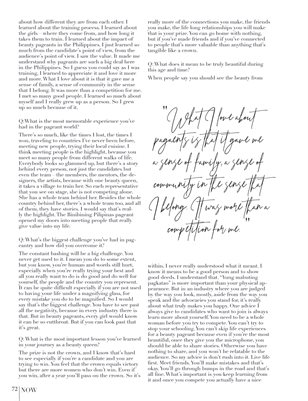 about how different they are from each other. I
learned about the training process. I learned about
the girls - where they come from, and how long it
takes them to train. I learned about the impact of
beauty pageants in the Philippines. I just learned so
much from the candidate's point of view, from the
audience's point of view. I saw the value. It made me
understand why pageants are such a big deal here
in the Philippines. So I guess you could say as I was
training, I learned to appreciate it and love it more
and more. What I love about it is that it gave me a
sense of family, a sense of community in the sense
that I belong. It was more than a competition for me.
I met so many good people. I learned so much about
myself and I really grew up as a person. So I grew
up so much because of it.
Q: What is the most memorable experience you've
had in the pageant world?
There's so much, like the times I lost, the times I
won, traveling to countries I've never been before,
meeting new people, trying their local cuisine. I
think meeting people is the highlight, because you
meet so many people from different walks of life.
Everybody looks so glamorous up, but there's a story
behind every person, not just the candidates but
even the team - the members, the mentors, the de-
signers, the artists, because with one beauty queen,
it takes a village to train her. So each representative
that you see on stage, she is not competing alone.
She has a whole team behind her. Besides the whole
country behind her, there's a whole team too, and all
of them, they have stories. I would say that's real-
ly the highlight. The Binibining Pilipinas pageant
opened my doors into meeting people that really
give value into my life.
Q: What's the biggest challenge you've had in pag-
eantry and how did you overcome it?
The constant bashing will be a big challenge. You
never get used to it. I mean you do to some extent,
but you know, you're human and words still hurt,
especially when you're really trying your best and
all you really want to do is do good and do well for
yourself, the people and the country you represent.
It can be quite difficult especially if you are not used
to having your life under a magnifying glass, but
every mistake you do to be magnified. So I would
say that's the biggest challenge. You have to see past
all the negativity, because in every industry, there is
that. But in beauty pageants, every girl would know
it can be so cutthroat. But if you can look past that
it's great.
Q: What is the most important lesson you've learned
in your journey as a beauty queen?
The prize is not the crown, and I know that's hard
to see especially if you're a candidate and you are
trying to win. You feel that the crown equals victory
but there are more women who don't win. Even if
you win, after a year you'll pass on the crown. So it's
really more of the connections you make, the friends
you make, the life-long relationships you will make
that is your prize. You can go home with nothing,
but if you've made friends and if you've connected
to people that's more valuable than anything that's
tangible like a crown.
Q: What does it mean to be truly beautiful during
this age and time?
When people say you should see the beauty from
"What I love about
pageantry is that it gave me
a sense of family, a sense of
community in the sense that
I belong. It was more than a
competition for me."
within, I never really understood what it meant. I
know it means to be a good person and to show
good deeds. I understand that. "Sang mabuting
pagkatao" is more important than your physical ap-
pearance. But in an industry where you are judged
by the way you look, mostly, aside from the way you
speak and the advocacies you stand for, it's really
about what truly makes you happy. One advice I
always give to candidates who want to join is always
learn more about yourself. You need to be a whole
woman before you try to compete. You can't try to
stop your schooling. You can't skip life experiences
for a beauty pageant because even if you're the most
beautiful, once they give you the microphone, you
should be able to share stories. Otherwise you have
nothing to share, and you won't be relatable to the
audience. So my advice is don't rush into it. Live life
first. Meet friends. You'll make mistakes and that's
okay. You'll go through bumps in the road and that's
all fine. What's important is you keep learning from
it and once you compete you actually have a nice
72 NOW